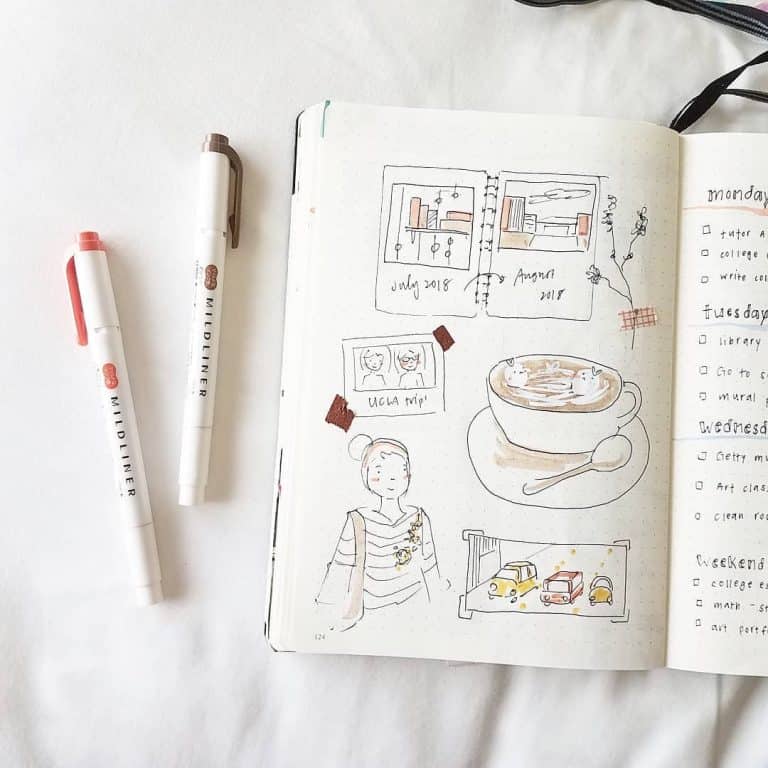 MILDLINER
MILDLINER
July 2018
August
2018
UCLA trip!
124
monday
tutor a
college
write col
tuesday
library
Go to s
mural
wednesd
Getty mu
Art clas
clean roo
weekend
college es
math - s
art portf